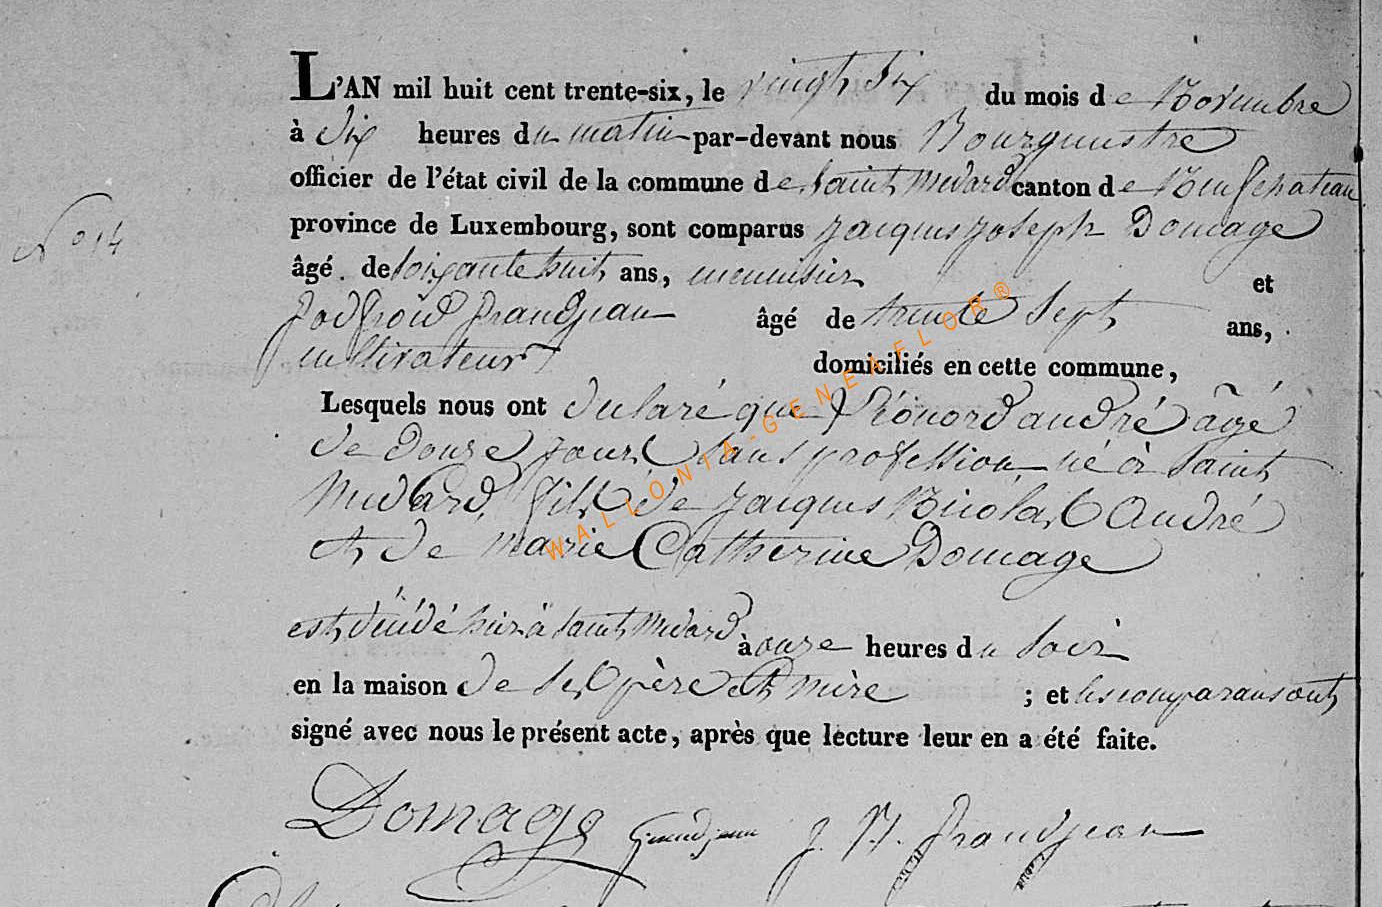 L'AN mil huit cent trente-six, le vingt six du mois de Novembre
à dix heures du matin par-devant nous Bourguestre
officier de l'état civil de la commune de Saint Medard canton de Neufchateau
N° 14
province de Luxembourg, sont comparus Jacques Joseph Domage
âgé de soixante huit ans, menuisier et
Godfroid Grandjean âgé de trente Sept ans,
cultivateur domiciliés en cette commune,
Lesquels nous ont declaré que Léonord andré âgé
de douze jours sans profession né à Saint
Medard, fils de Jacques Nicolas André
et de Marie Catherine Domage
est décédé hier à Saint Medard à onze heures du Soir
en la maison de ses père et mère ; et les comparans ont
signé avec nous le présent acte, après que lecture leur en a été faite.
Domage Grandjean J. N. Grandjean
WALLONIA-GENEAFLOR®